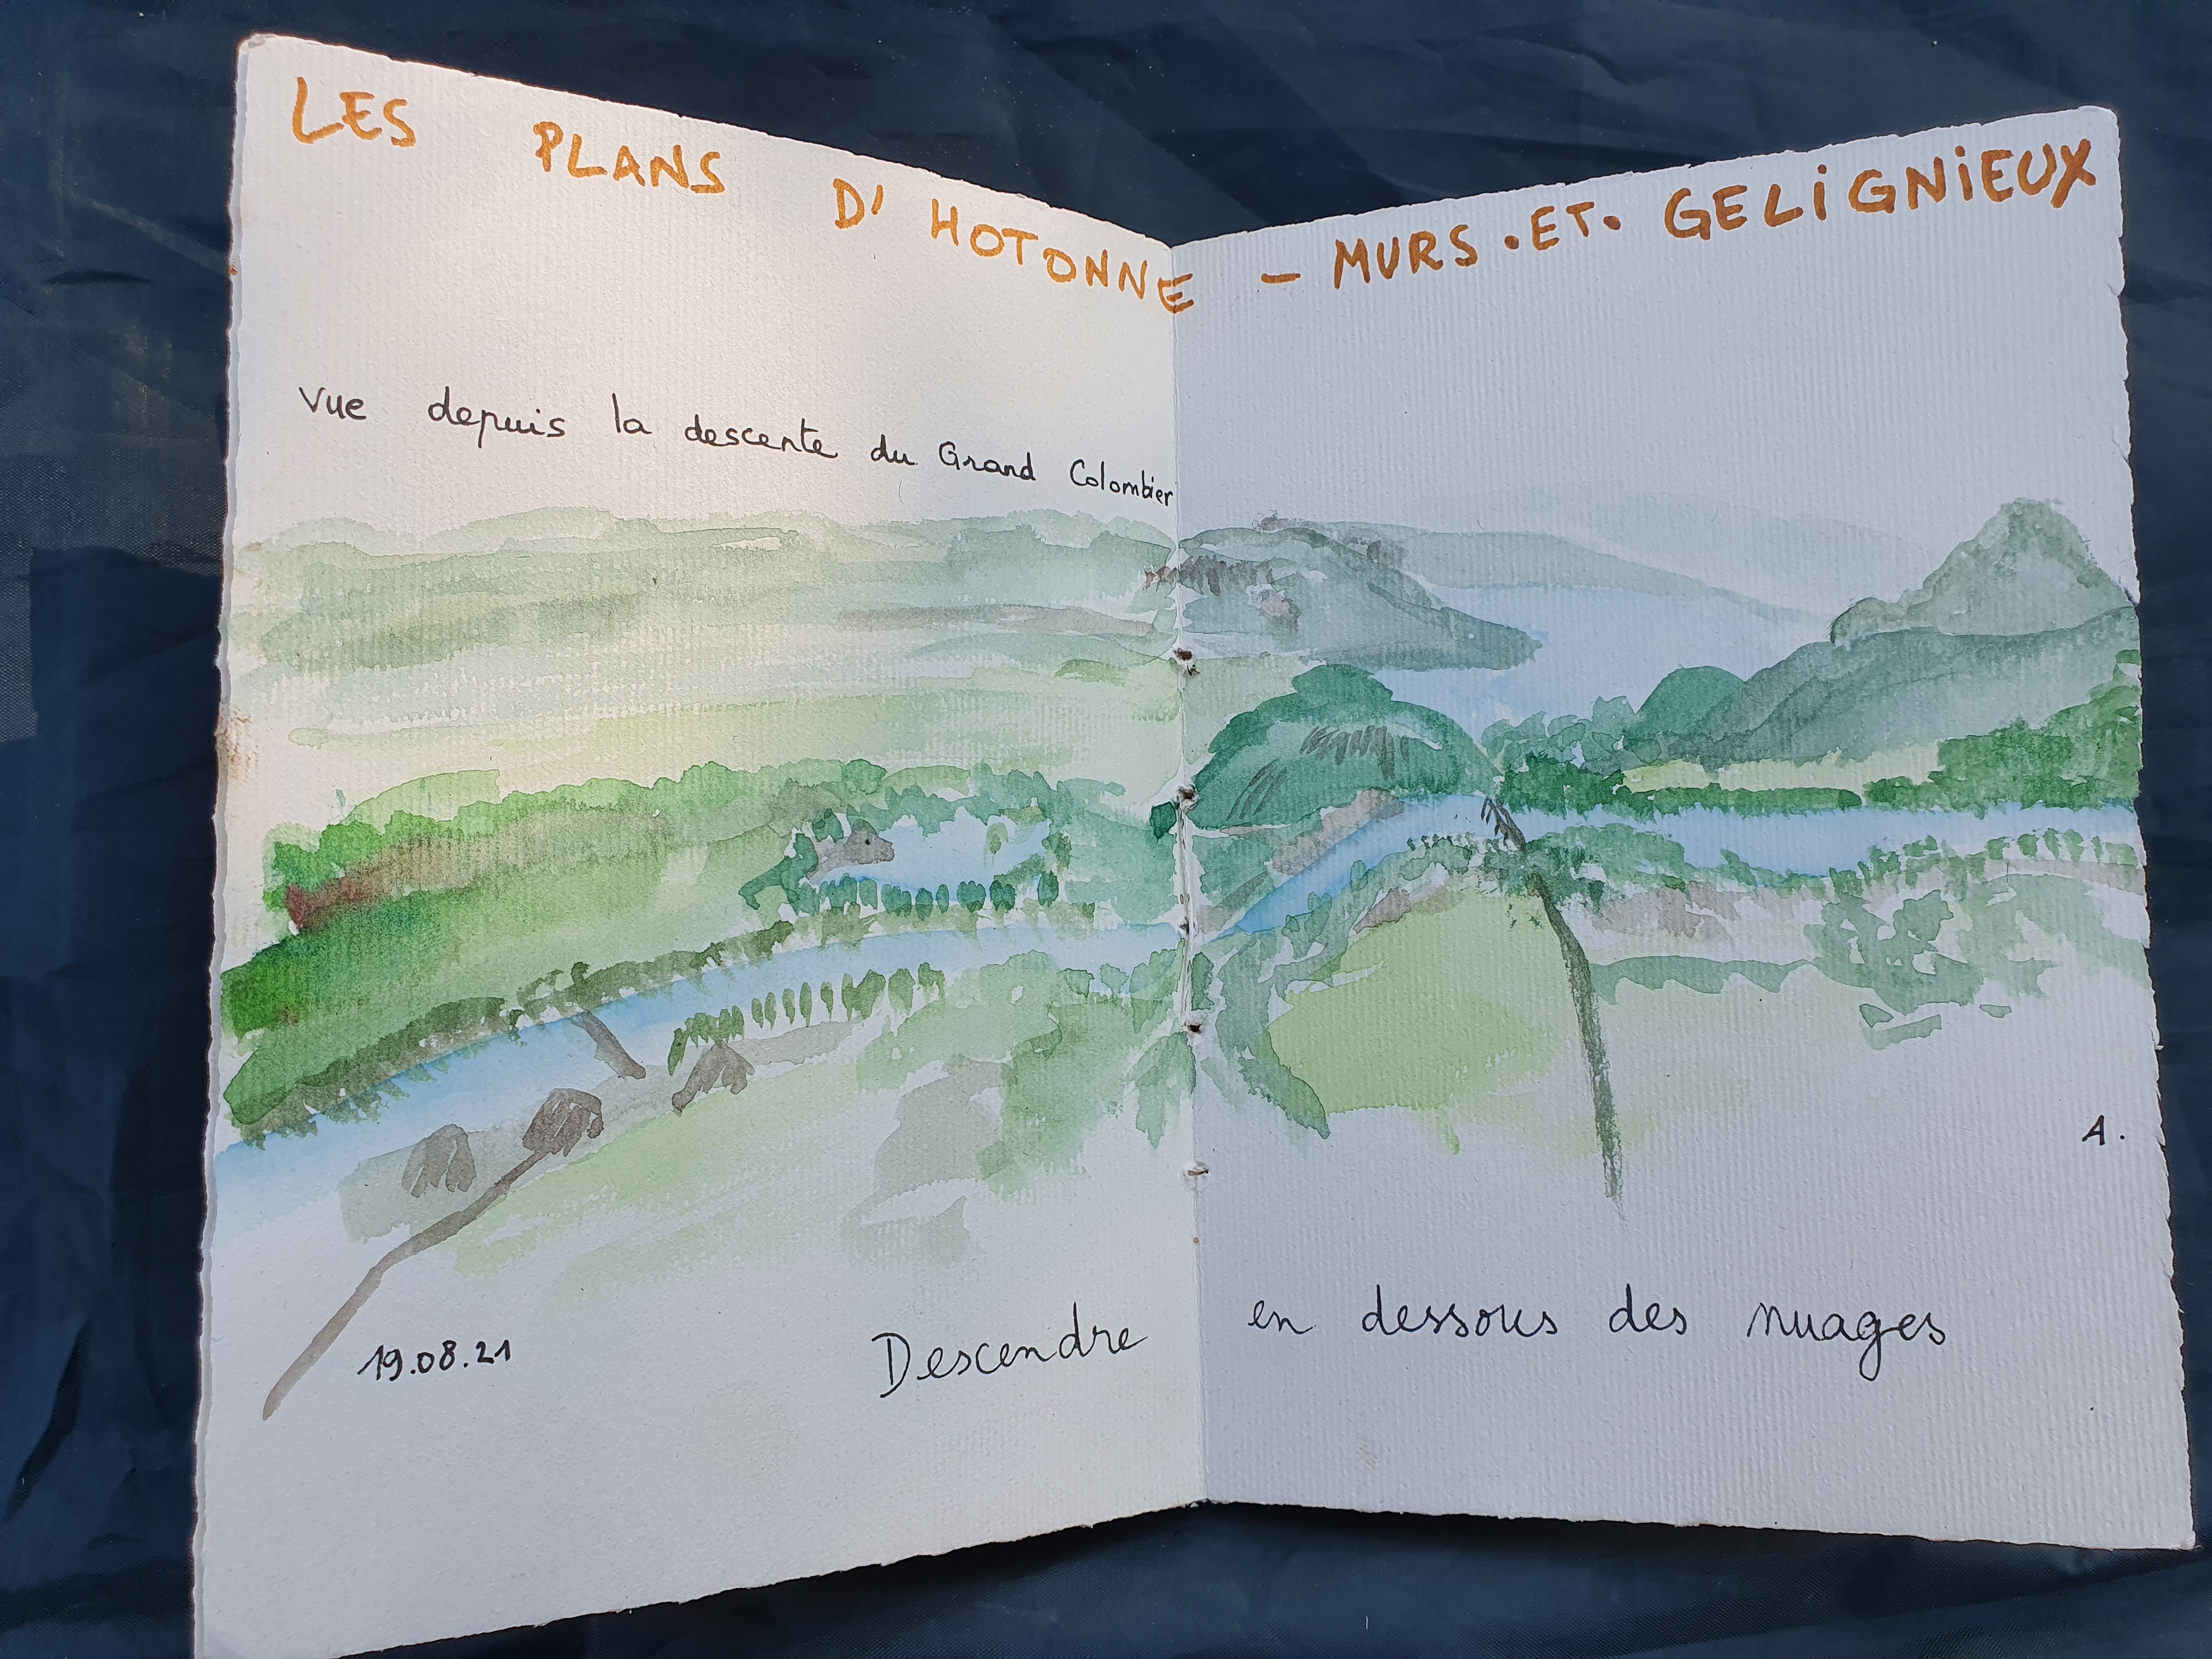 LES PLANS D' HOTONNE - MURS.ET. GELiGNiEUX
vue depuis la descente du Grand Colombier
A.
19.08.21
Descendre en dessous des nuages